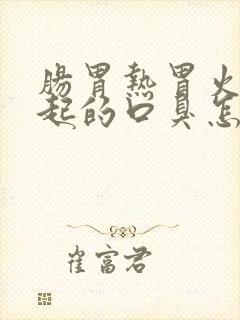 腸胃熱胃火
起的口臭怎
崔富君